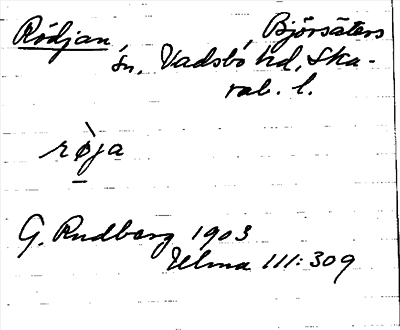 Rödjan, Björsäters
sn, Vadsbo hd, Ska-
rab. l.
rø̀ja
G. Rudberg 1903
Ulma 111:309